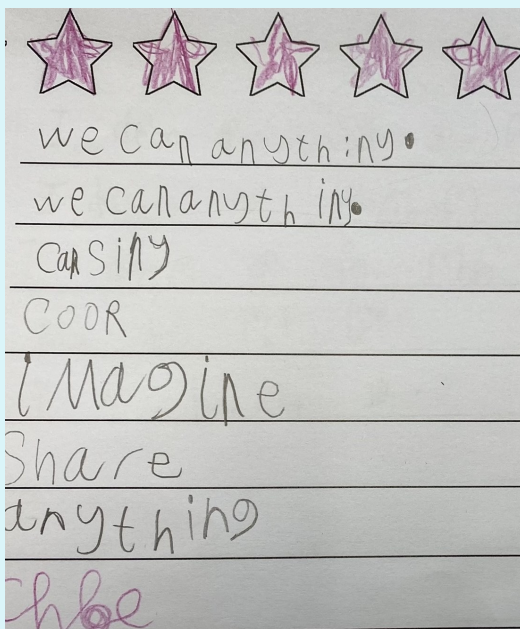 we can anything.
we can anything.
can siny
COOR
iMagine
Share
anything
Chloe